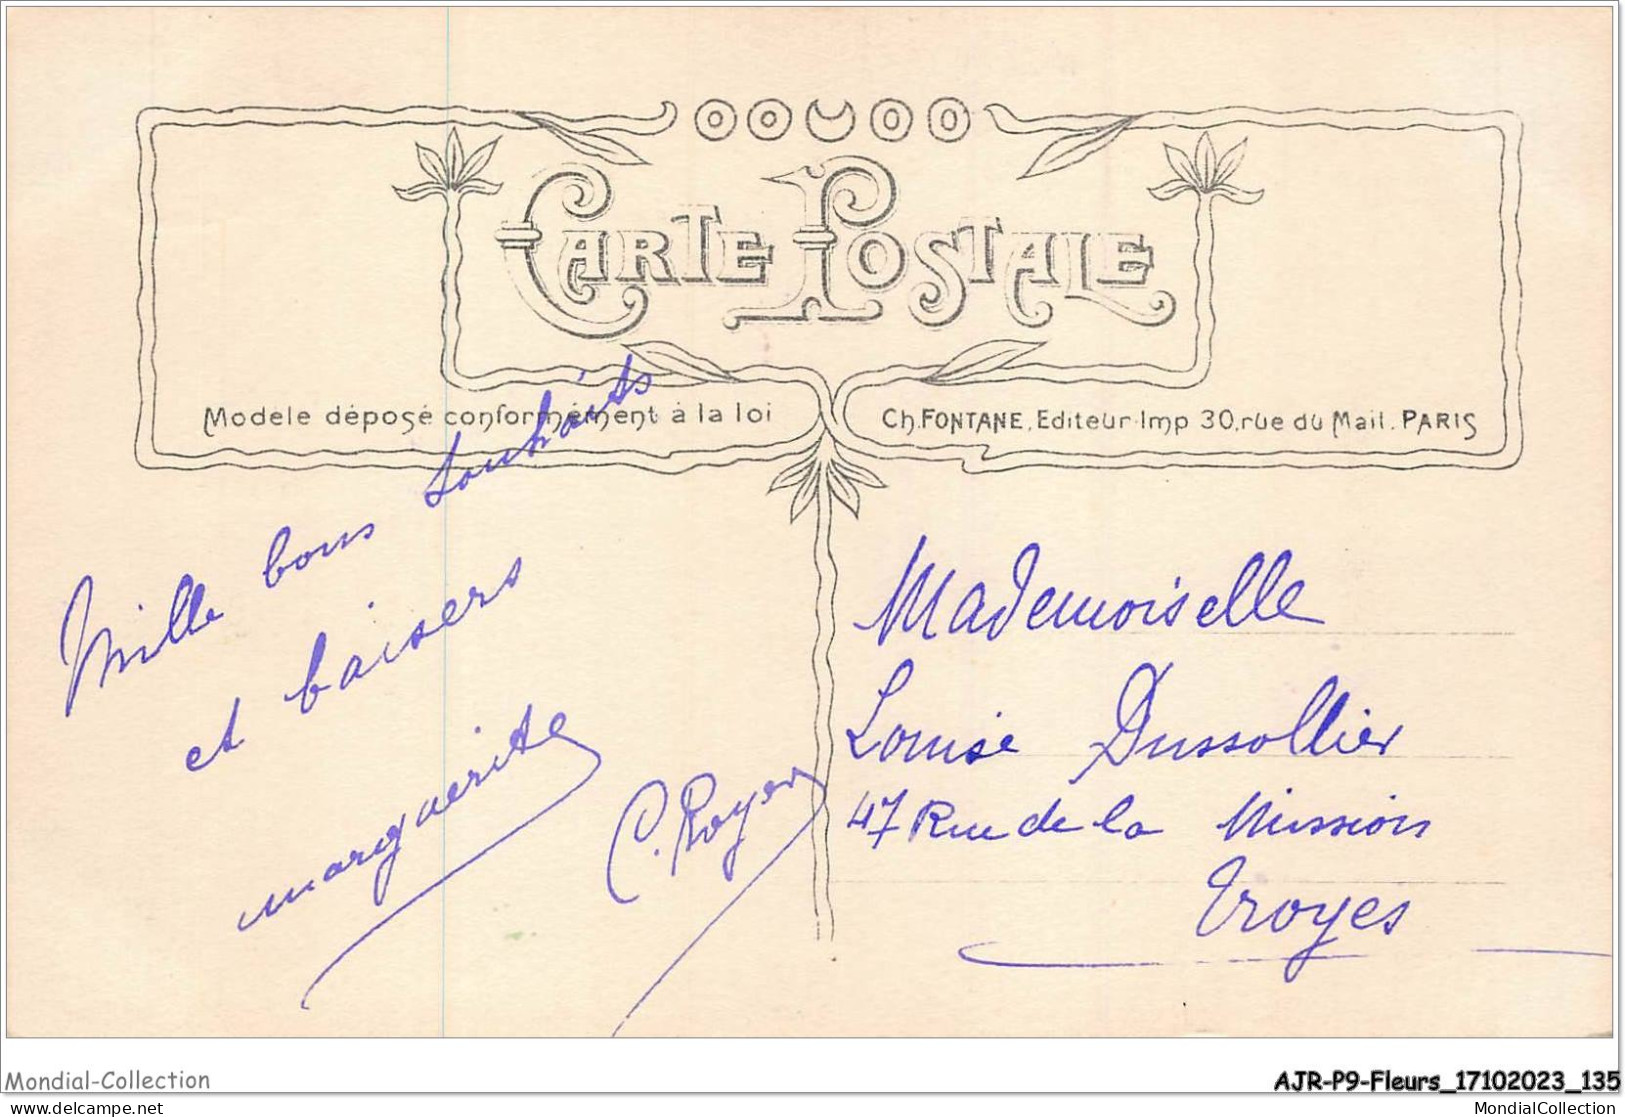 CARTE POSTALE
Modèle déposé conformément à la loi
Ch. FONTANE, Editeur-Imp 30, rue du Mail. PARIS
Mille bons souhaits
et baisers
marguerite
C. Royer
Mademoiselle
Louise Dussollier
47 Rue de la Mission
Troyes
Mondial-Collection
AJR-P9-Fleurs_17102023_135
www.delcampe.net
MondialCollection